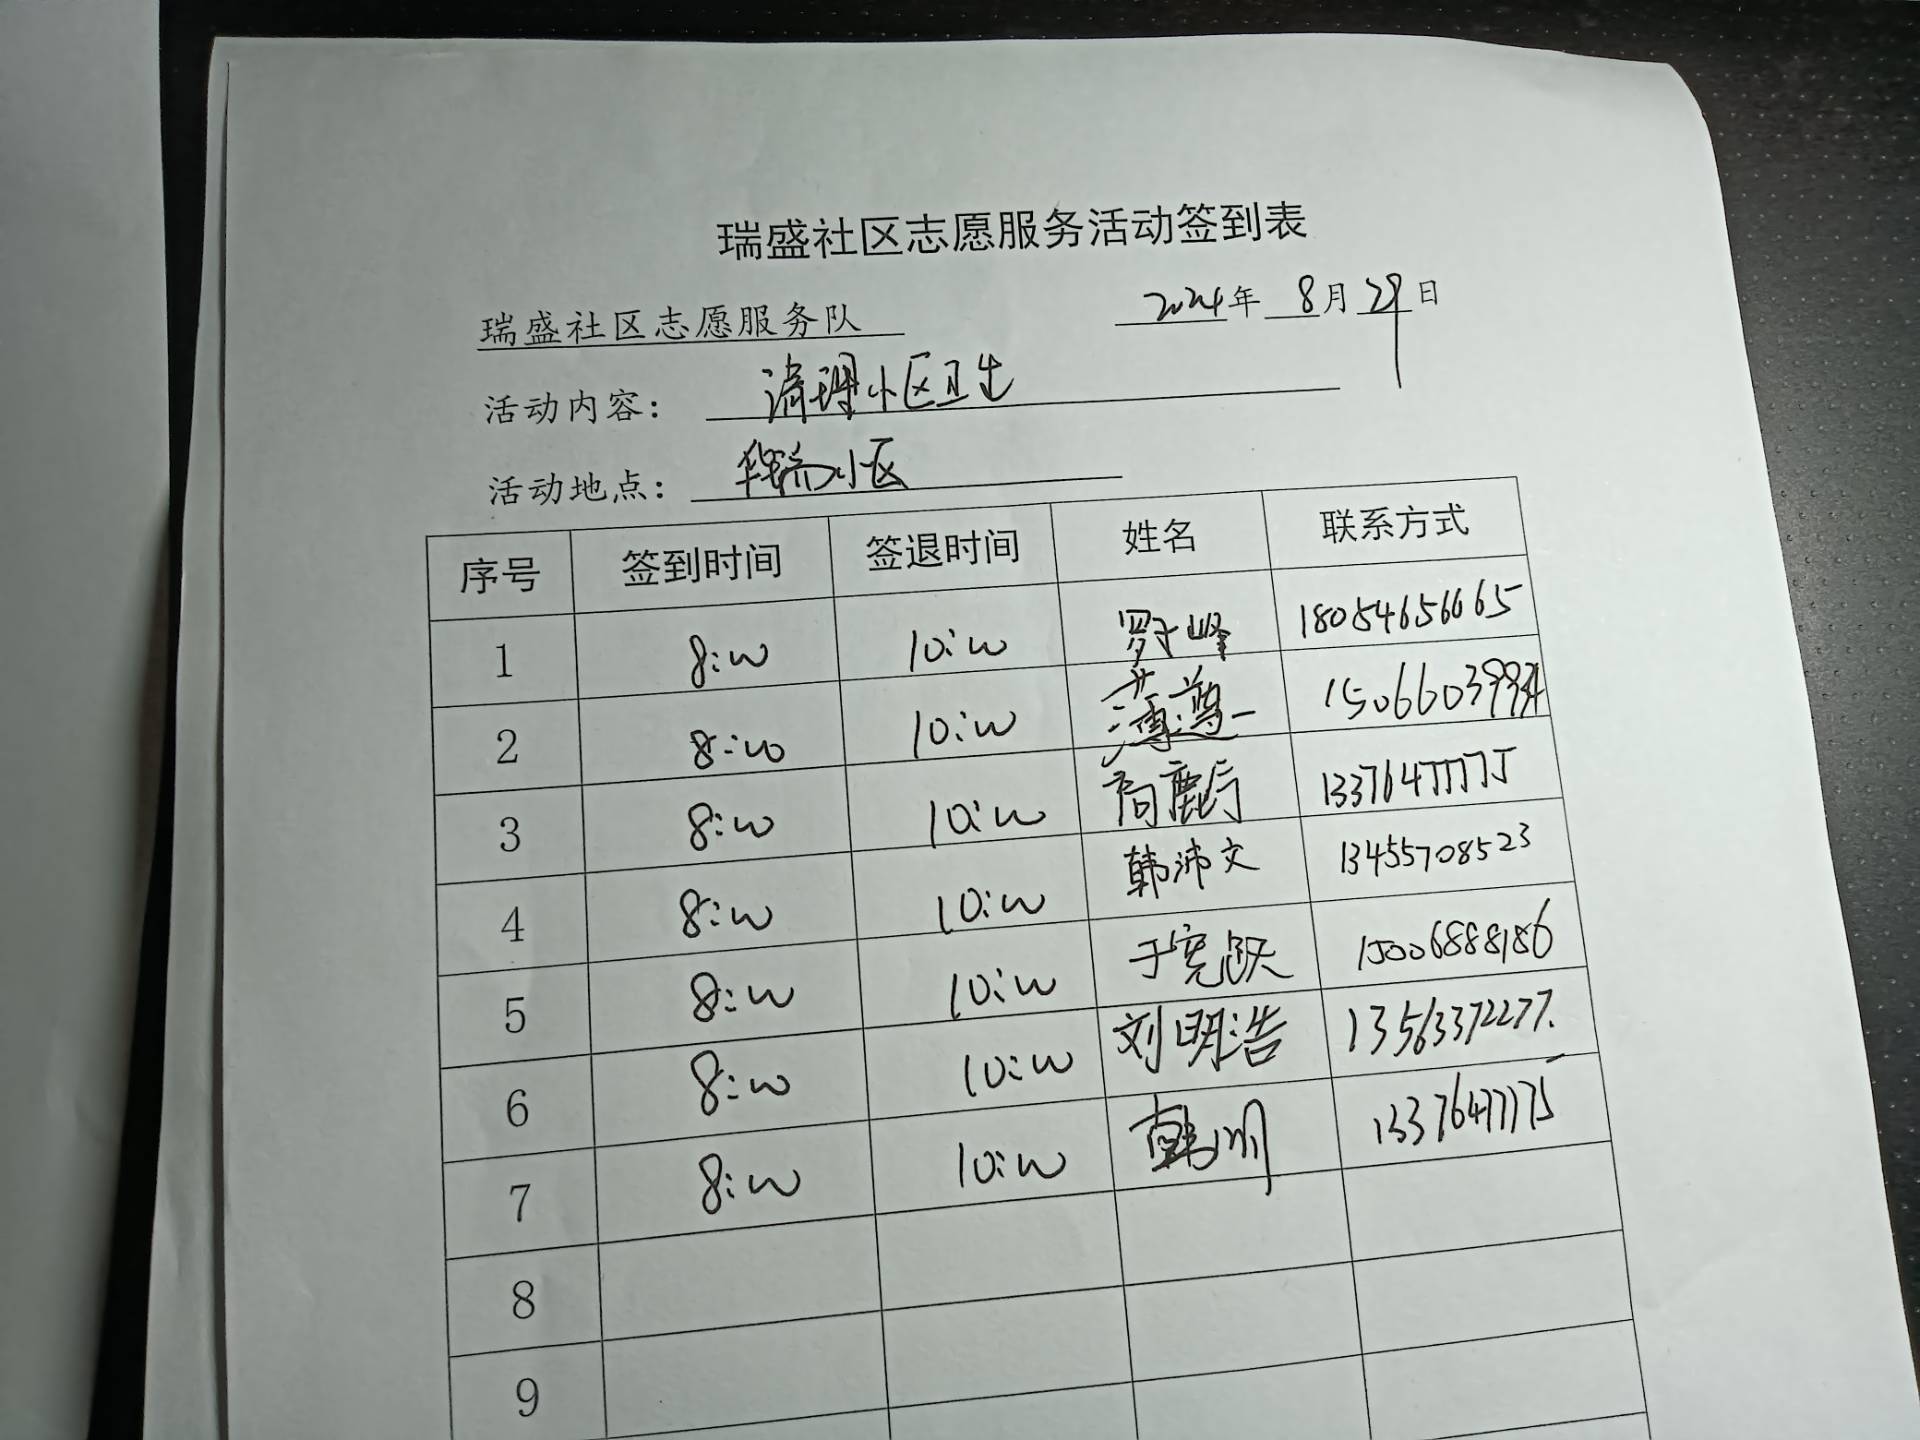 瑞盛社区志愿服务活动签到表
瑞盛社区志愿服务队 2024年 8月29日
活动内容： 清理小区卫生
活动地点： 华瑞小区
序号 签到时间 签退时间 姓名 联系方式
1 8:00 10:00 罗峰 18054656665
2 8:00 10:00 薄遵一 150660399
3 8:00 10:00 13376477775
4 8:00 10:00 韩沛文 13455708523
5 8:00 10:00 于宪跃 15006888186
6 8:00 10:00 刘明浩 13563372277
7 8:00 10:00 韩川 13376477775
8
9